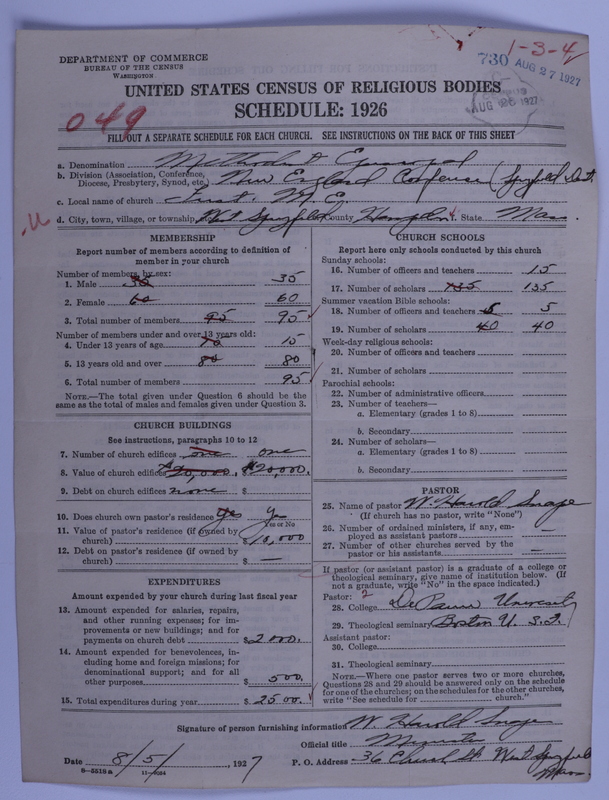 DEPARTMENT OF COMMERCE
BUREAU OF THE CENSUS
WASHINGTON
1-3-4
730 AUG 27 1927
CENSUS
AUG 26 1927
UNITED STATES CENSUS OF RELIGIOUS BODIES
SCHEDULE: 1926
049
FILL OUT A SEPARATE SCHEDULE FOR EACH CHURCH. SEE INSTRUCTIONS ON THE BACK OF THIS SHEET
a. Denomination Methodist Episcopal
b. Division (Association, Conference, Diocese, Presbytery, Synod, etc.) New England Conference (Springfield Dist.
c. Local name of church First M. E.
d. City, town, village, or township West Springfield County Hampden State Mass.
MEMBERSHIP
Report number of members according to definition of member in your church
Number of members, by sex:
1. Male 35
2. Female 60 60
3. Total number of members 95 95
Number of members under and over 13 years old:
4. Under 13 years of age 15
5. 13 years old and over 80 80
6. Total number of members 95
NOTE.—The total given under Question 6 should be the same as the total of males and females given under Question 3.
CHURCH BUILDINGS
See instructions, paragraphs 10 to 12
7. Number of church edifices one one
8. Value of church edifices $20,000. $20,000.
9. Debt on church edifices none $
10. Does church own pastor's residence Yes Yes
Yes or No
11. Value of pastor's residence (if owned by church) $10,000
12. Debt on pastor's residence (if owned by church) $ —
EXPENDITURES
Amount expended by your church during last fiscal year
13. Amount expended for salaries, repairs, and other running expenses; for improvements or new buildings; and for payments on church debt $2000.
14. Amount expended for benevolences, including home and foreign missions; for denominational support; and for all other purposes $500.
15. Total expenditures during year $2500.
CHURCH SCHOOLS
Report here only schools conducted by this church
Sunday schools:
16. Number of officers and teachers 15
17. Number of scholars 135 135
Summer vacation Bible schools:
18. Number of officers and teachers 5 5
19. Number of scholars 40 40
Week-day religious schools:
20. Number of officers and teachers
21. Number of scholars
Parochial schools:
22. Number of administrative officers
23. Number of teachers—
a. Elementary (grades 1 to 8)
b. Secondary
24. Number of scholars—
a. Elementary (grades 1 to 8)
b. Secondary
PASTOR
25. Name of pastor W. Harold Snape
(If church has no pastor, write "None")
26. Number of ordained ministers, if any, employed as assistant pastors —
27. Number of other churches served by the pastor or his assistants —
If pastor (or assistant pastor) is a graduate of a college or theological seminary, give name of institution below. (If not a graduate, write "No" in the space indicated.)
Pastor: 2
28. College DePauw University
29. Theological seminary Boston U. S.T.
Assistant pastor:
30. College
31. Theological seminary
NOTE.—Where one pastor serves two or more churches, Questions 28 and 29 should be answered only on the schedule for one of the churches; on the schedules for the other churches, write "See schedule for ______ church."
Signature of person furnishing information W. Harold Snape
Official title Minister
Date 8/5/, 1927
P. O. Address 36 Church St West Springfield Mass.
8-5518a 11-9024